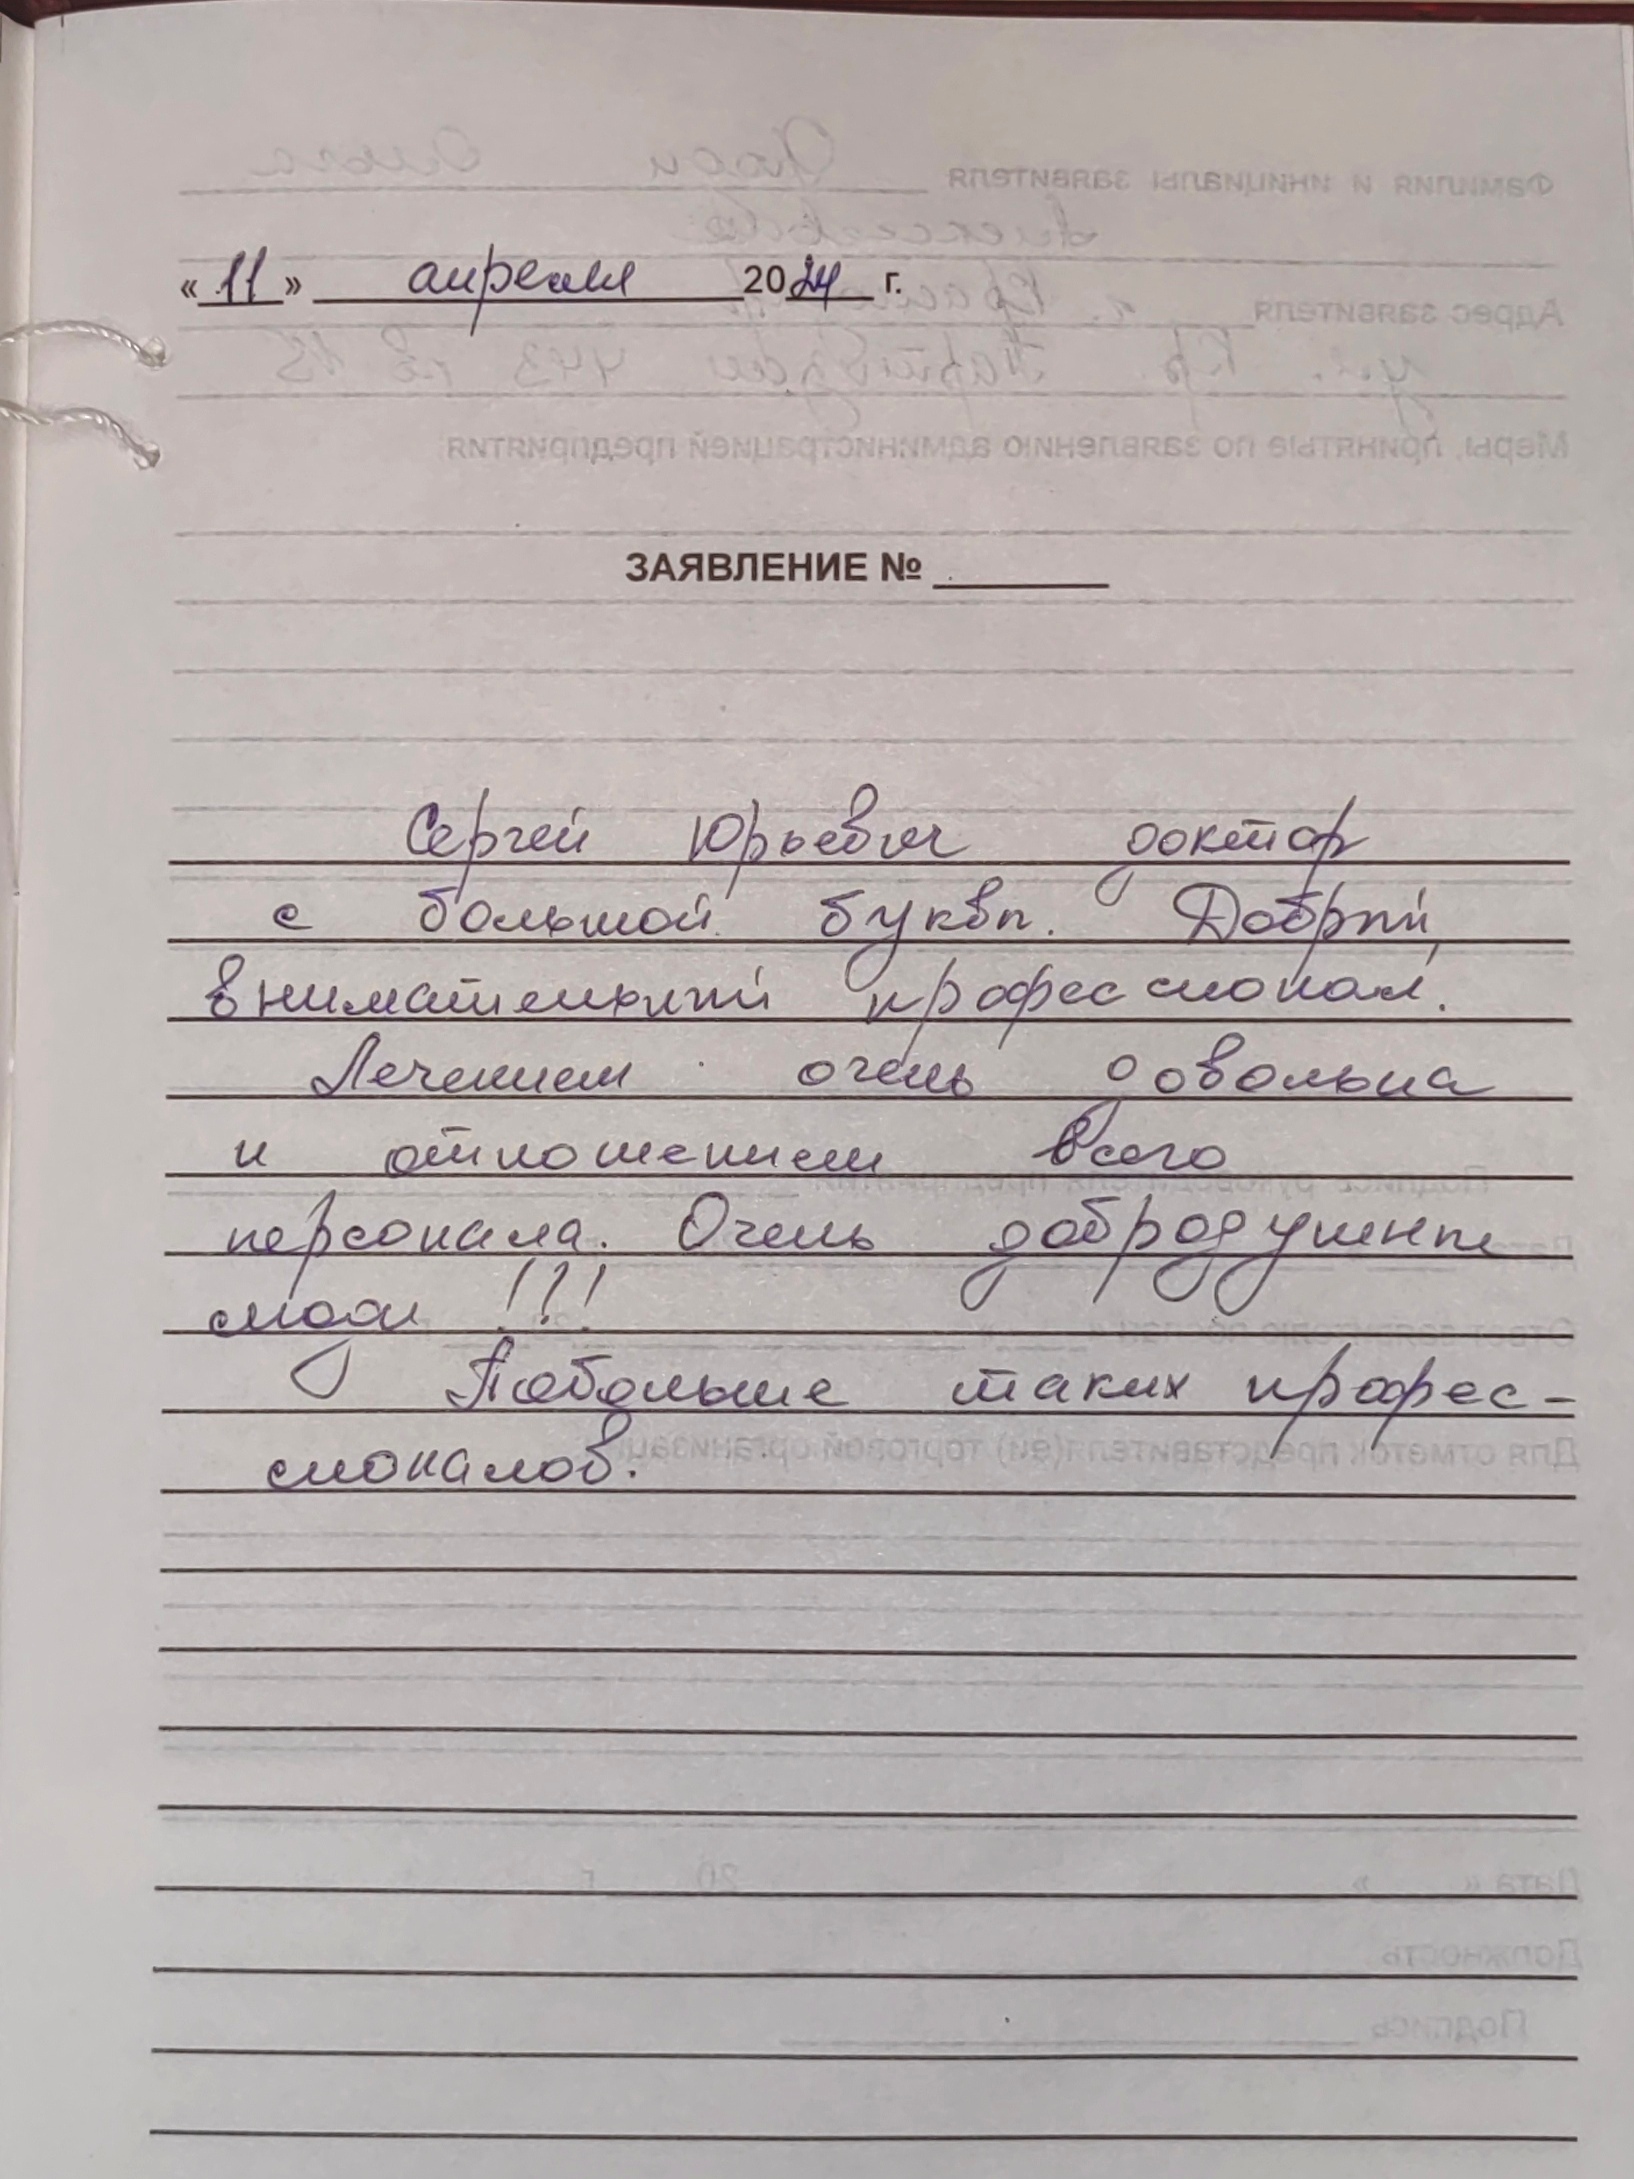 «11» апреля 2024 г.
ЗАЯВЛЕНИЕ №
Сергей Юрьевич доктор
с большой буквы. Добрый,
внимательный профессионал.
Лечением очень довольна
и отношением всего
персонала. Очень добродушные
люди !!!
Побольше таких профес-
сионалов.